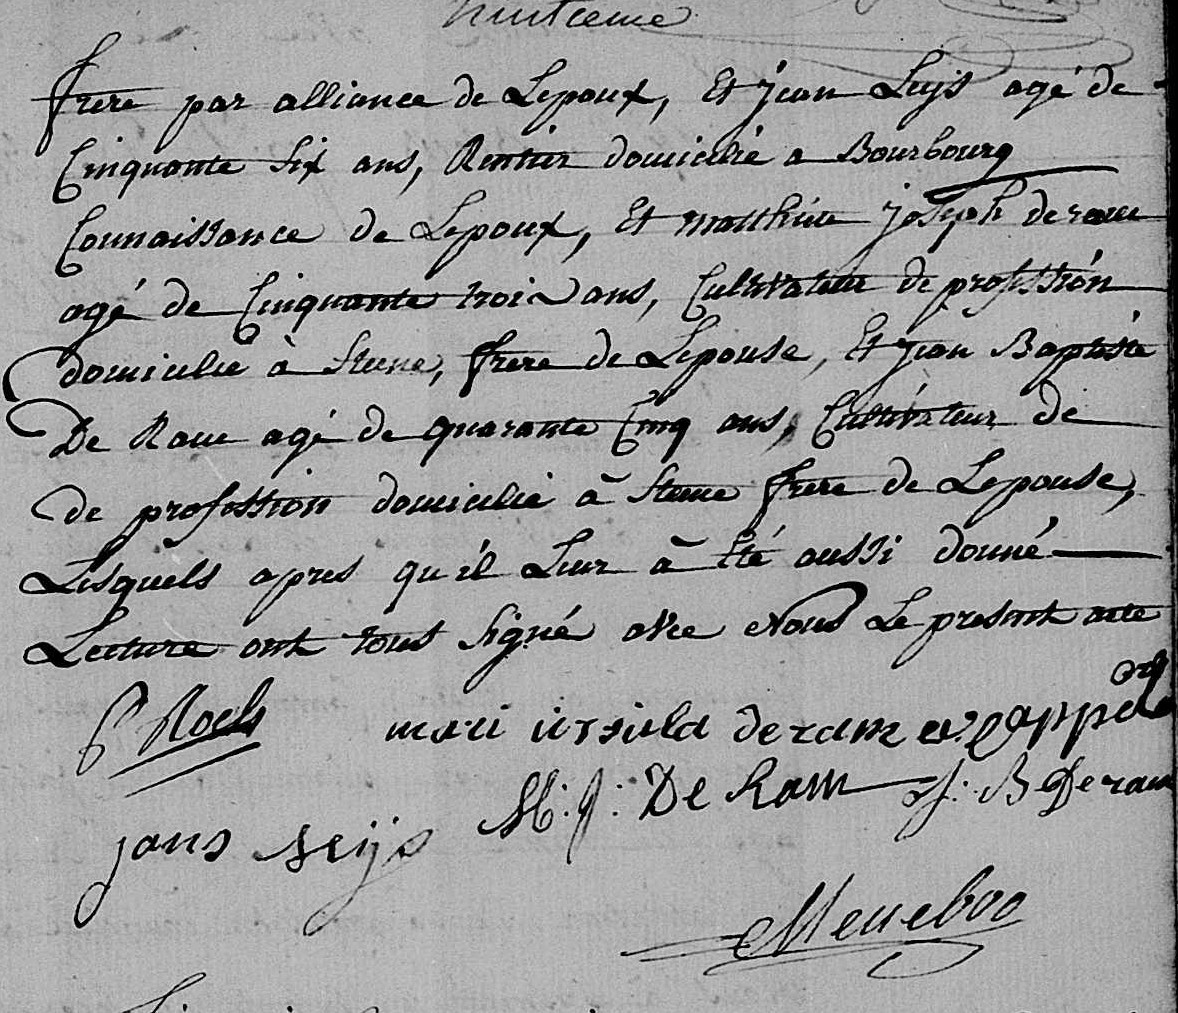 huitieme
frere par alliance de Lepoux, Et jean Leijs agé de
Cinquante Six ans, Rentier domicilié a Bourbourg
Connaissance de Lepoux, Et Matthieu joseph de ram
agé de Cinquante trois ans, Cultivateur de profession
domicilié à Steene, frere de Lepouse, Et jean Baptiste
De Ram agé de quarante Cinq ans, Cultivateur de
de profession domicilié à Steene frere de Lepouse,
Lesquels apres qu'il Leur à Eté aussi donné
Lecture ont tous Signé avec Nous Le present acte
Roels mari ursula deram
jans M: J: De Ram J: B Deram
Meneboo